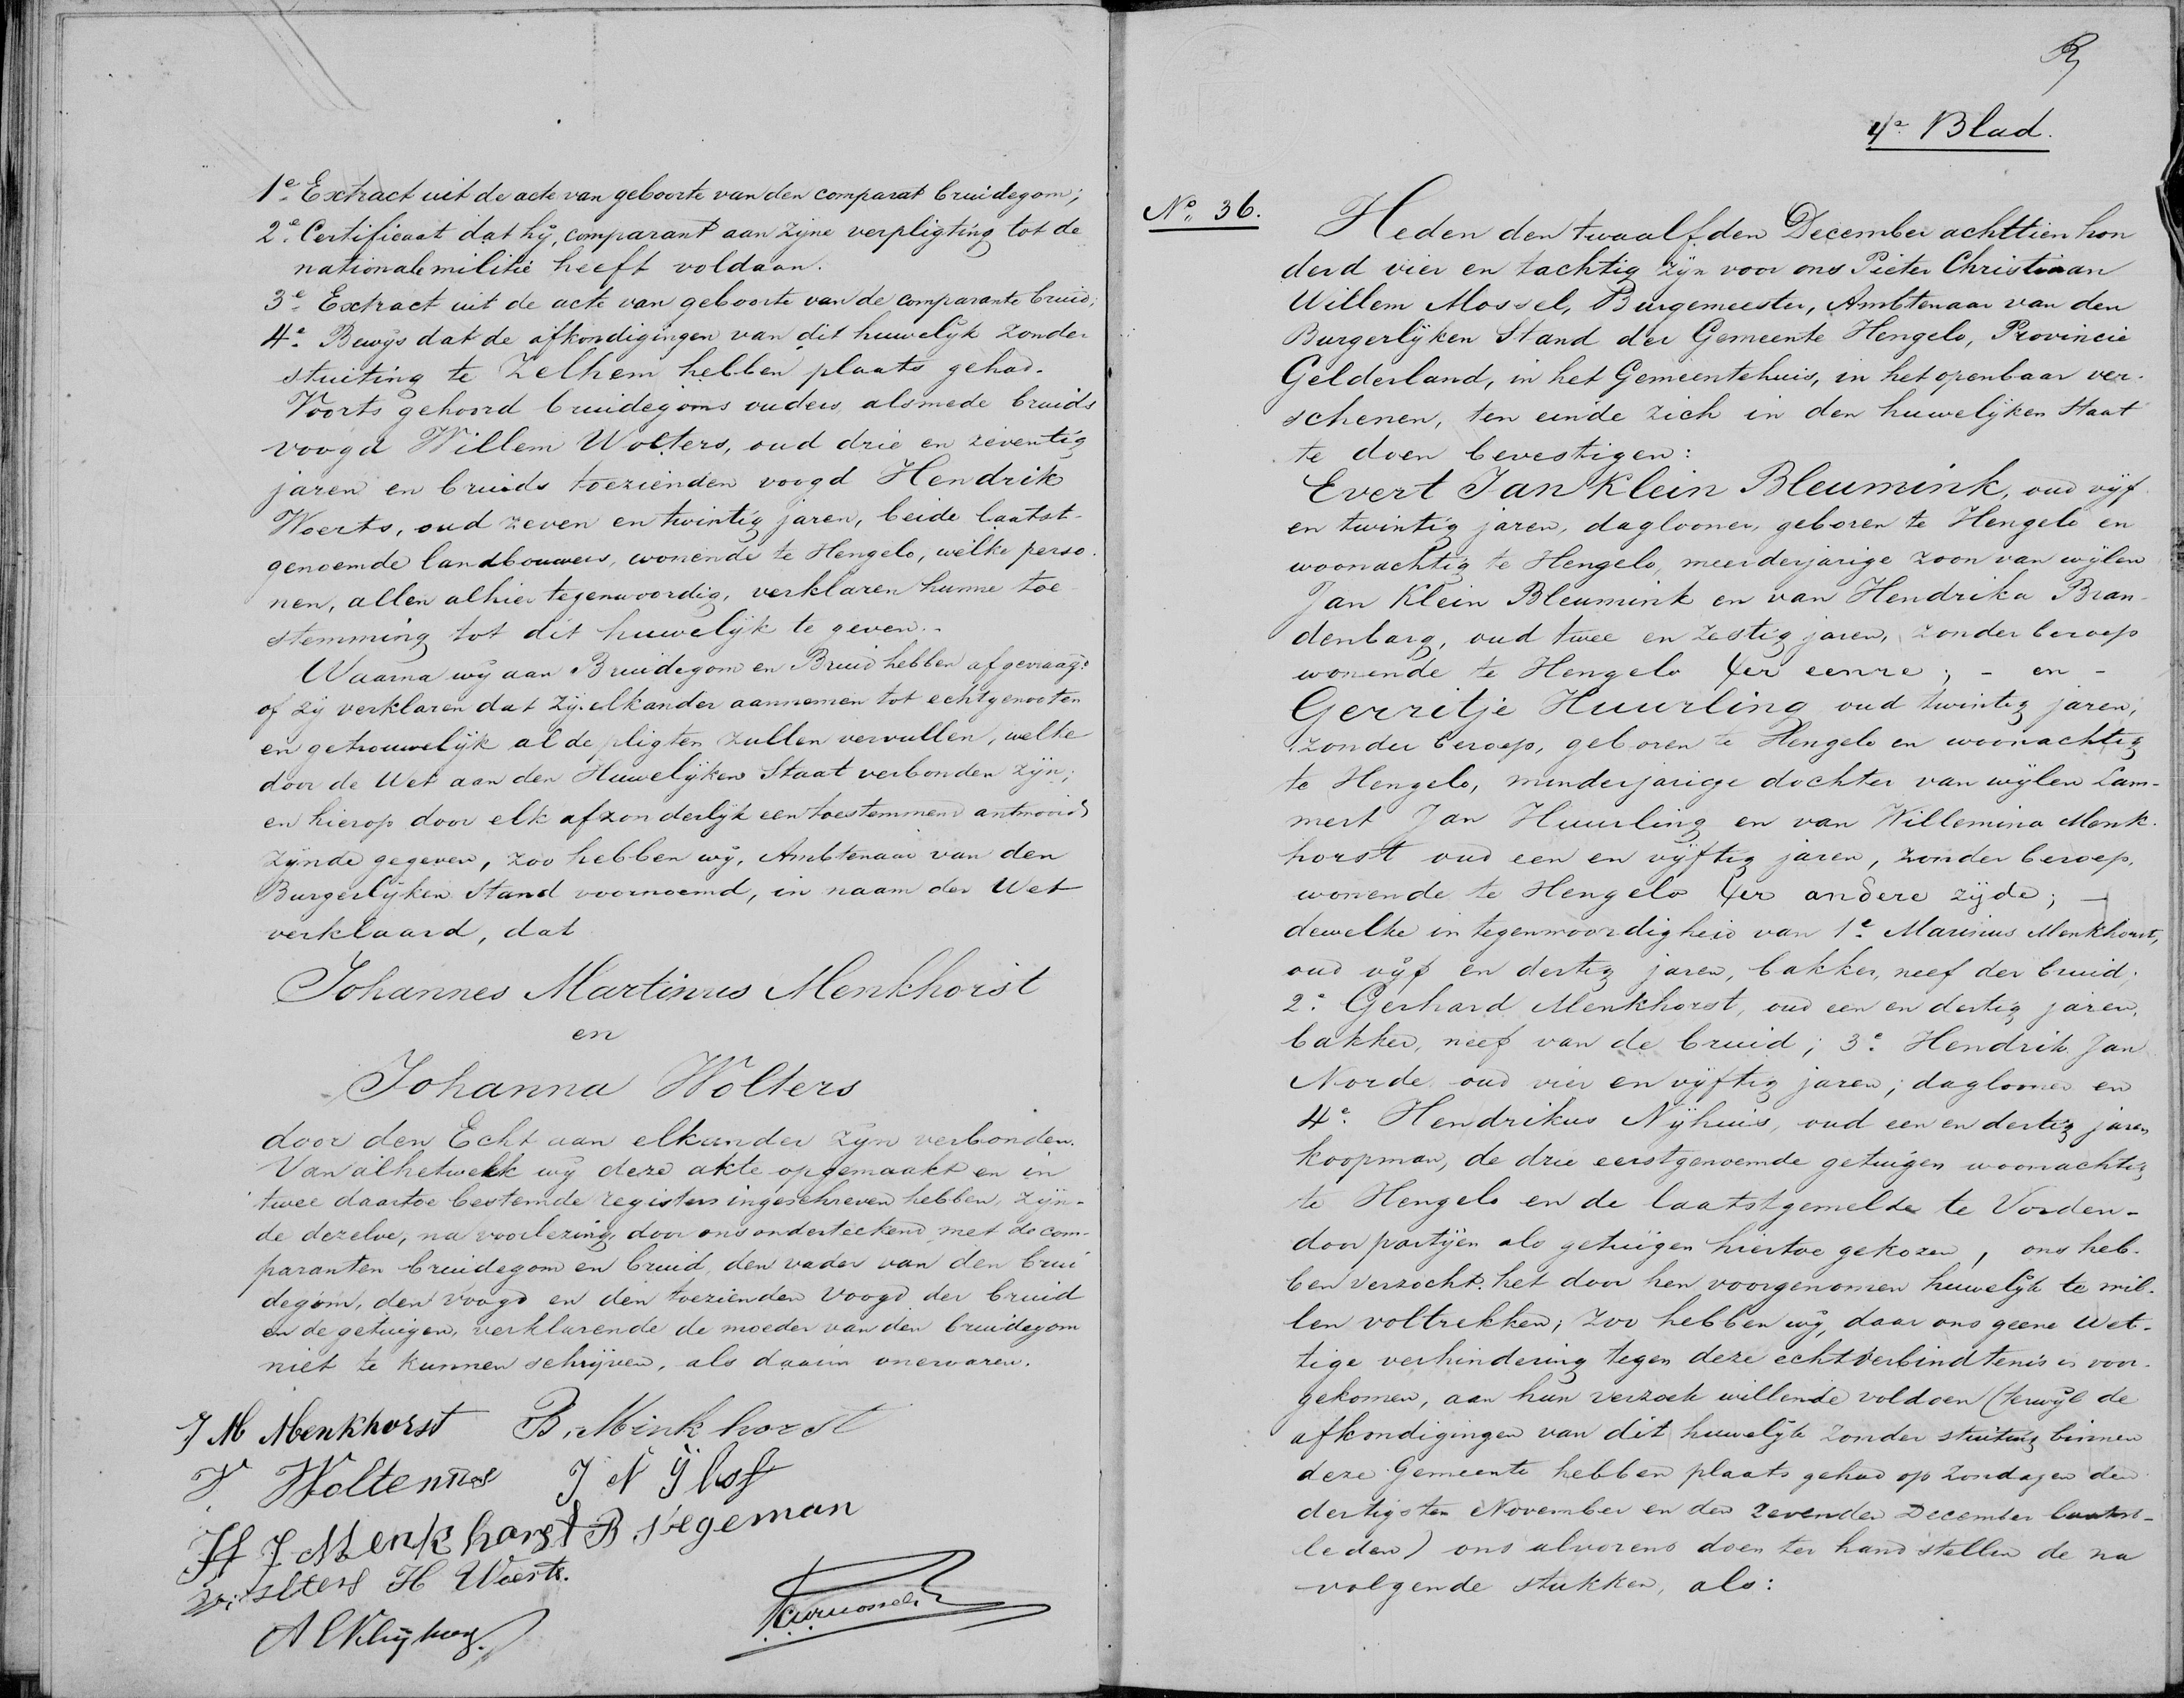 1e. Extract uit de acte van geboorte van den comparat bruidegom;
2e. Certificaat dat hij, comparant aan zijne verpligting tot de
nationale militie heeft voldaan.
3e. Extract uit de acte van geboorte van de comparante bruid;
4e. Bewijs dat de afkondigingen van dit huwelijk zonder
stuiting te Zelhem hebben plaats gehad.
Voorts gehoord bruidegoms ouders, alsmede bruids
voogd Willem Wolters, oud drie en zeventig
jaren en bruids toezienden voogd Hendrik
Weerts, oud zeven en twintig jaren, beide laatst-
genoemde landbouwers, wonende te Hengelo, welke perso-
nen, allen alhier tegenwoordig, verklaren hunne toe
stemming tot dit huwelijk te geven.-
Waarna wij aan Bruidegom en Bruid hebben afgevraagd
of zij verklaren dat zij elkander aannemen tot echtgenooten
en getrouwelijk al de pligten zullen vervullen, welke
door de Wet aan den Huwelijken Staat verbonden zijn;
en hierop door elk afzonderlijk een toestemmend antwoord
zijnde gegeven, zoo hebben wij, Ambtenaar van den
Burgerlijken Stand voornoemd, in naam der Wet
verklaard, dat
Johannes Martinus Menkhorst
en
Johanna Wolters
door den Echt aan elkander zijn verbonden.
Van alhetwelk wij deze akte opgemaakt en in
twee daartoe bestemde registers ingeschreven hebben, zijn-
de dezelve, na voorlezing, door ons onderteekend met de com-
paranten bruidegom en bruid, den vader van den brui
degom, den voogd en den toezienden voogd der bruid
en de getuigen, verklarende de moeder van den bruidegom
niet te kunnen schrijven, als daarin onervaren.
J M Menkhorst B. Minkhorst
J N
H J Menkhorst B Siegeman
Wolters H Weerts.
4e. Blad.
No. 36.
Heden den twaalfden December achttien hon
derd vier en tachtig zijn voor ons Pieter Christiaan
Willem Mossel, Burgemeester, Ambtenaar van den
Burgerlijken Stand der Gemeente Hengelo, Provincie
Gelderland, in het Gemeentehuis, in het openbaar ver-
schenen, ten einde zich in den huwelijken Staat
te doen bevestigen:
Evert Jan Klein Bleumink, oud vijf
en twintig jaren, daglooner, geboren te Hengelo en
woonachtig te Hengelo, meerderjarige zoon van wijlen
Jan Klein Bleumink en van Hendrika Bran-
denbarg, oud twee en zestig jaren, zonder beroep
wonende te Hengelo ter eenre; - en -
Gerritje Huurling oud twintig jaren,
zonder beroep, geboren te Hengelo en woonachtig
te Hengelo, minderjarige dochter van wijlen Lam-
mert Jan Huurling en van Willemina Menk-
horst oud een en vijftig jaren, zonder beroep,
wonende te Hengelo ter andere zijde; -
dewelke in tegenwoordigheid van 1e. Marinus Menkhorst,
oud vijf en dertig jaren, bakker, neef der bruid;
2e. Gerhard Menkhorst, oud een en dertig jaren,
bakker, neef van de bruid; 3e. Hendrik Jan
Norde oud vier en vijftig jaren; daglooner en
4e. Hendrikus Nijhuis, oud een en dertig jaren
koopman, de drie eerstgenoemde getuigen woonachtig
te Hengelo en de laatstgemelde te Vorden-
door partijen als getuigen hiertoe gekozen, ons heb-
ben verzocht het door hen voorgenomen huwelijk te wil-
len voltrekken; zoo hebben wij, daar ons geene wet-
tige verhindering tegen deze echtverbindtenis is voor-
gekomen, aan hun verzoek willende voldoen (terwijl de
afkondigingen van dit huwelijk zonder stuiting binnen
deze Gemeente hebben plaats gehad op Zondagen den
dertigsten November en den zevenden December laatst-
leden) ons alvorens doen ter hand stellen de na
volgende stukken, als: